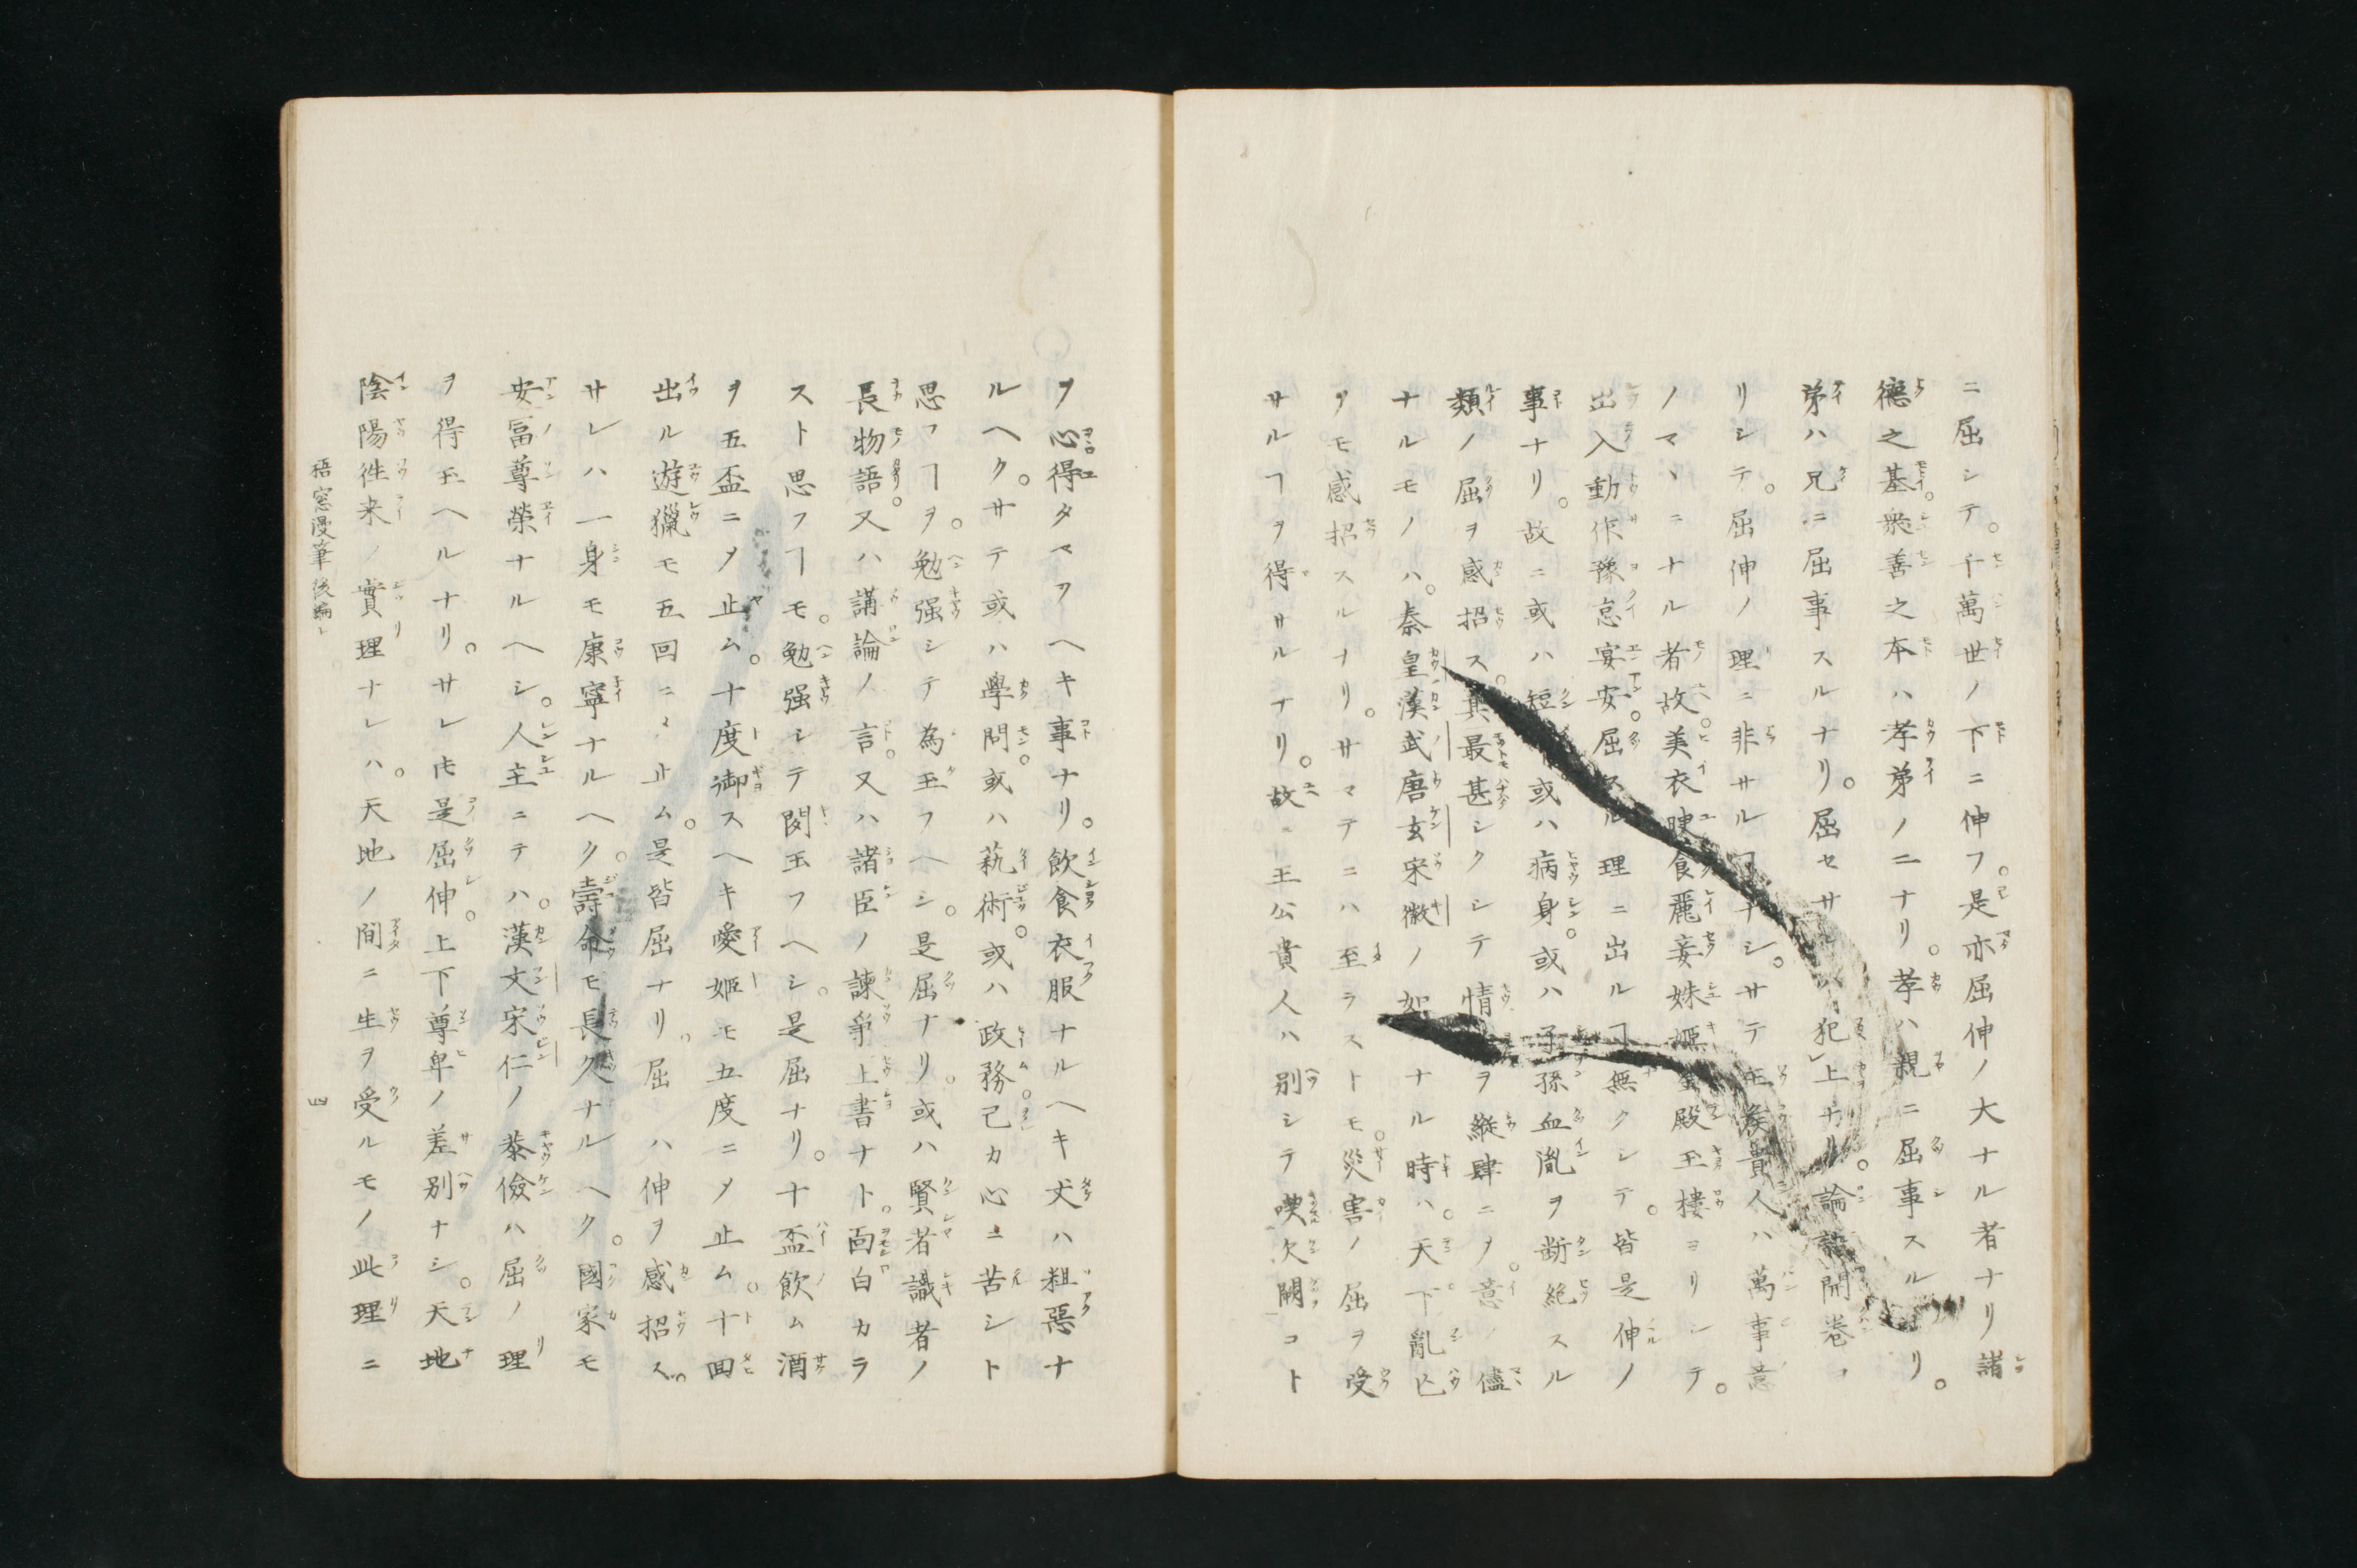 ニ屈シテ。千萬世ノ下ニ伸フ。是亦屈伸ノ大ナル者ナリ諸
德之基。衆善之本ハ孝弟ノ二ナリ。孝ハ親ニ屈事スルナリ。
弟ハ兄ニ屈事スルナリ。屈セサレハ犯上ナリ。論語開卷ノ
リシテ。屈伸ノ理ニ非サルヿナシ。サテ王矦貴人ハ萬事意
ノマヽニナル者故。美衣腴食麗妾姝姫金殿玉樓ヨリシテ。
出入動作豫怠宴安。屈スル理ニ出ルヿ無クシテ。皆是伸ノ
事ナリ。故ニ或ハ短或ハ病身。或ハ子孫血胤ヲ断絶スル
類ノ屈ヲ感招ス。其最甚シクシテ情ヲ縱肆ニメ。意ノ儘
ナルモノハ。秦皇漢武唐玄宋徽ノ如ナル時ハ。天下亂亡
ヲモ感招スルナリ。サマテニハ至ラストモ。災害ノ屈ヲ受
サルヿヲ得サルナリ。故ニ王公貴人ハ別シテ嘆欠闕コト
ヲ心得タマフヘキ事ナリ。飲食衣服ナルヘキ丈ハ粗惡ナ
ルヘク。サテ或ハ學問。或ハ藝術。或ハ政務。己カ心ニ苦シト
思フヿヲ。勉强シテ為玉フヘシ。是屈ナリ。或ハ賢者識者ノ
長物語。又ハ講論ノ言。又ハ諸臣ノ諫爭上書ナト。面白カラ
スト思フヿモ。勉强シテ閲玉フヘシ。是屈ナリ。十盃飲ム酒
ヲ五盃ニメ止ム。十度御スヘキ愛姫モ五度ニメ止ム。十回
出ル遊獵モ五回ニメ止ム。是皆屈ナリ。屈ハ伸ヲ感招ス。
サレハ一身モ康寧ナルヘク。壽命モ長久ナルヘク。國家モ
安富尊榮ナルヘシ。人主ニテハ。漢文宋仁ノ恭儉ハ屈ノ理
ヲ得玉ヘルナリ。サレ𪜈是屈伸。上下尊卑ノ差別ナシ。天地
陰陽徃来ノ實理ナレハ。天地ノ間ニ生ヲ受ルモノ此理ニ
梧窓漫筆後編上 四